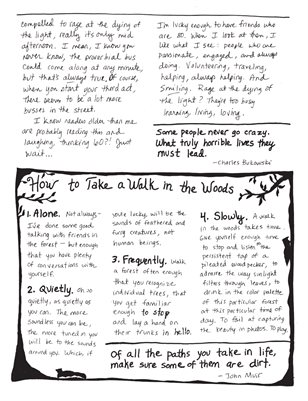 compelled to rage at the dying of
the light, really it's only mid
afternoon. I mean, I know you
never know, the proverbial bus
could come along at any minute
but that's always true. Of course,
when you start your third act,
there seem to be a lot more
busses in the street.
I know readers older than me
are probably reading this and
laughing, thinking 60?! Just
wait...
I'm lucky enough to have friends who
are 80. When I look at them, I
like what I see: people who are
passionate, engaged, and always
doing. Volunteering, traveling,
helping, always helping. And
smiling. Rage at the dying of
the light? They're too busy
learning, living, loving.
Some people never go crazy.
What truly horrible lives they
must lead.
- Charles Bukowski
How to Take a Walk in the Woods
1. Alone. Not always-
I've done some good
talking with friends in
the forest - but enough
that you have plenty
of conversations with
yourself.
2. Quietly. Oh so
quietly, as quietly as
you can. The more
soundless you can be,
the more tuned in you
will be to the sounds
around you. Which, if
you're lucky, will be the
sounds of feathered and
furry creatures, not
human beings.
3. Frequently. Walk
a forest often enough
that you recognize
individual trees, that
you get familiar
enough to stop
and lay a hand on
their trunks in hello.
4. Slowly. A walk
in the woods takes time.
Give yourself enough time
to stop and listen to the
persistent tap of a
pileated woodpecker, to
admire the way sunlight
filters through leaves, to
drink in the color palette
of this particular forest
at this particular time of
day. To fail at capturing
the beauty in photos. To play.
Of all the paths you take in life,
make sure some of them are dirt.
- John Muir